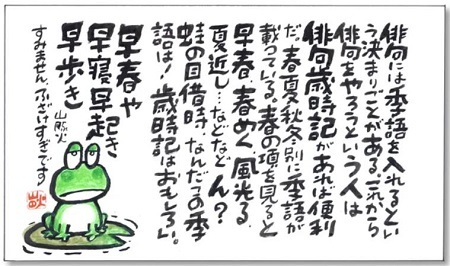 俳句には季語を入れるとい
う決まりごとがある。これから
俳句をやろうという人は
俳句歳時記があれば便利
だ。春夏秋冬別に季語が
載っている。春の項を見ると
早春、春めく、風光る、
夏近し…などなど ん?
蛙の目借時、なんだこの季
語は! 歳時記はおもしろい。
早春や
早寝早起き
早歩き
すみません、ふざけすぎです